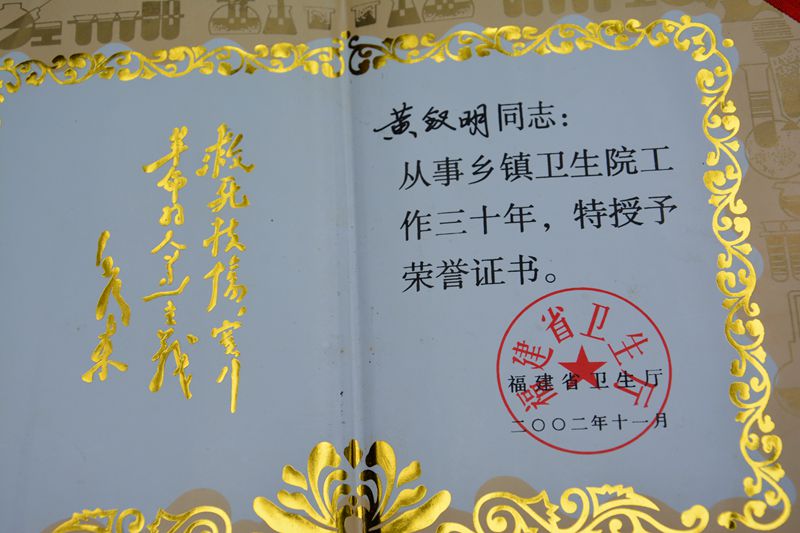 救死扶伤，实行
革命的人道主义
毛泽东
黄钗明同志：
从事乡镇卫生院工
作三十年，特授予
荣誉证书。
福建省卫生厅
福建省卫生厅
二〇〇二年十一月